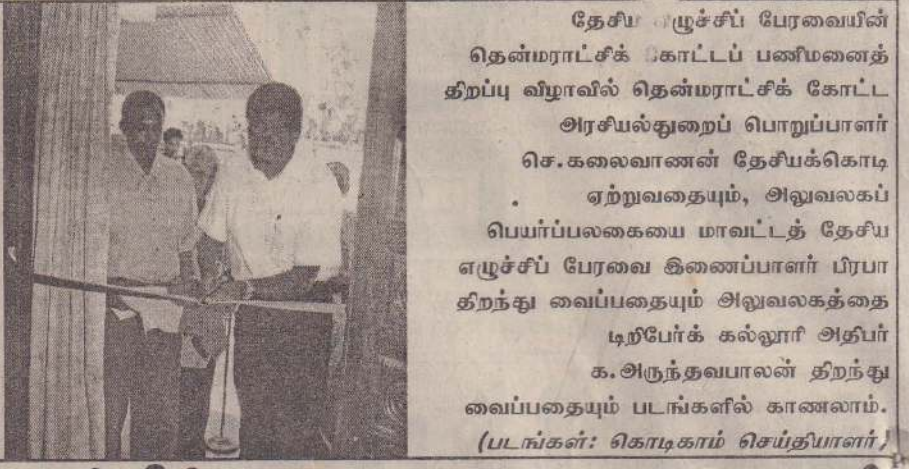 தேசிய எழுச்சிப் பேரவையின்
தென்மராட்சிக் கோட்டப் பணிமனைத்
திறப்பு விழாவில் தென்மராட்சிக் கோட்ட
அரசியல்துறைப் பொறுப்பாளர்
செ.கலைவாணன் தேசியக்கொடி
ஏற்றுவதையும், அலுவலகப்
பெயர்ப்பலகையை மாவட்டத் தேசிய
எழுச்சிப் பேரவை இணைப்பாளர் பிரபா
திறந்து வைப்பதையும் அலுவலகத்தை
டிறிபேர்க் கல்லூரி அதிபர்
க.அருந்தவபாலன் திறந்து
வைப்பதையும் படங்களில் காணலாம்.
(படங்கள்: கொடிகாம் செய்தியாளர்)